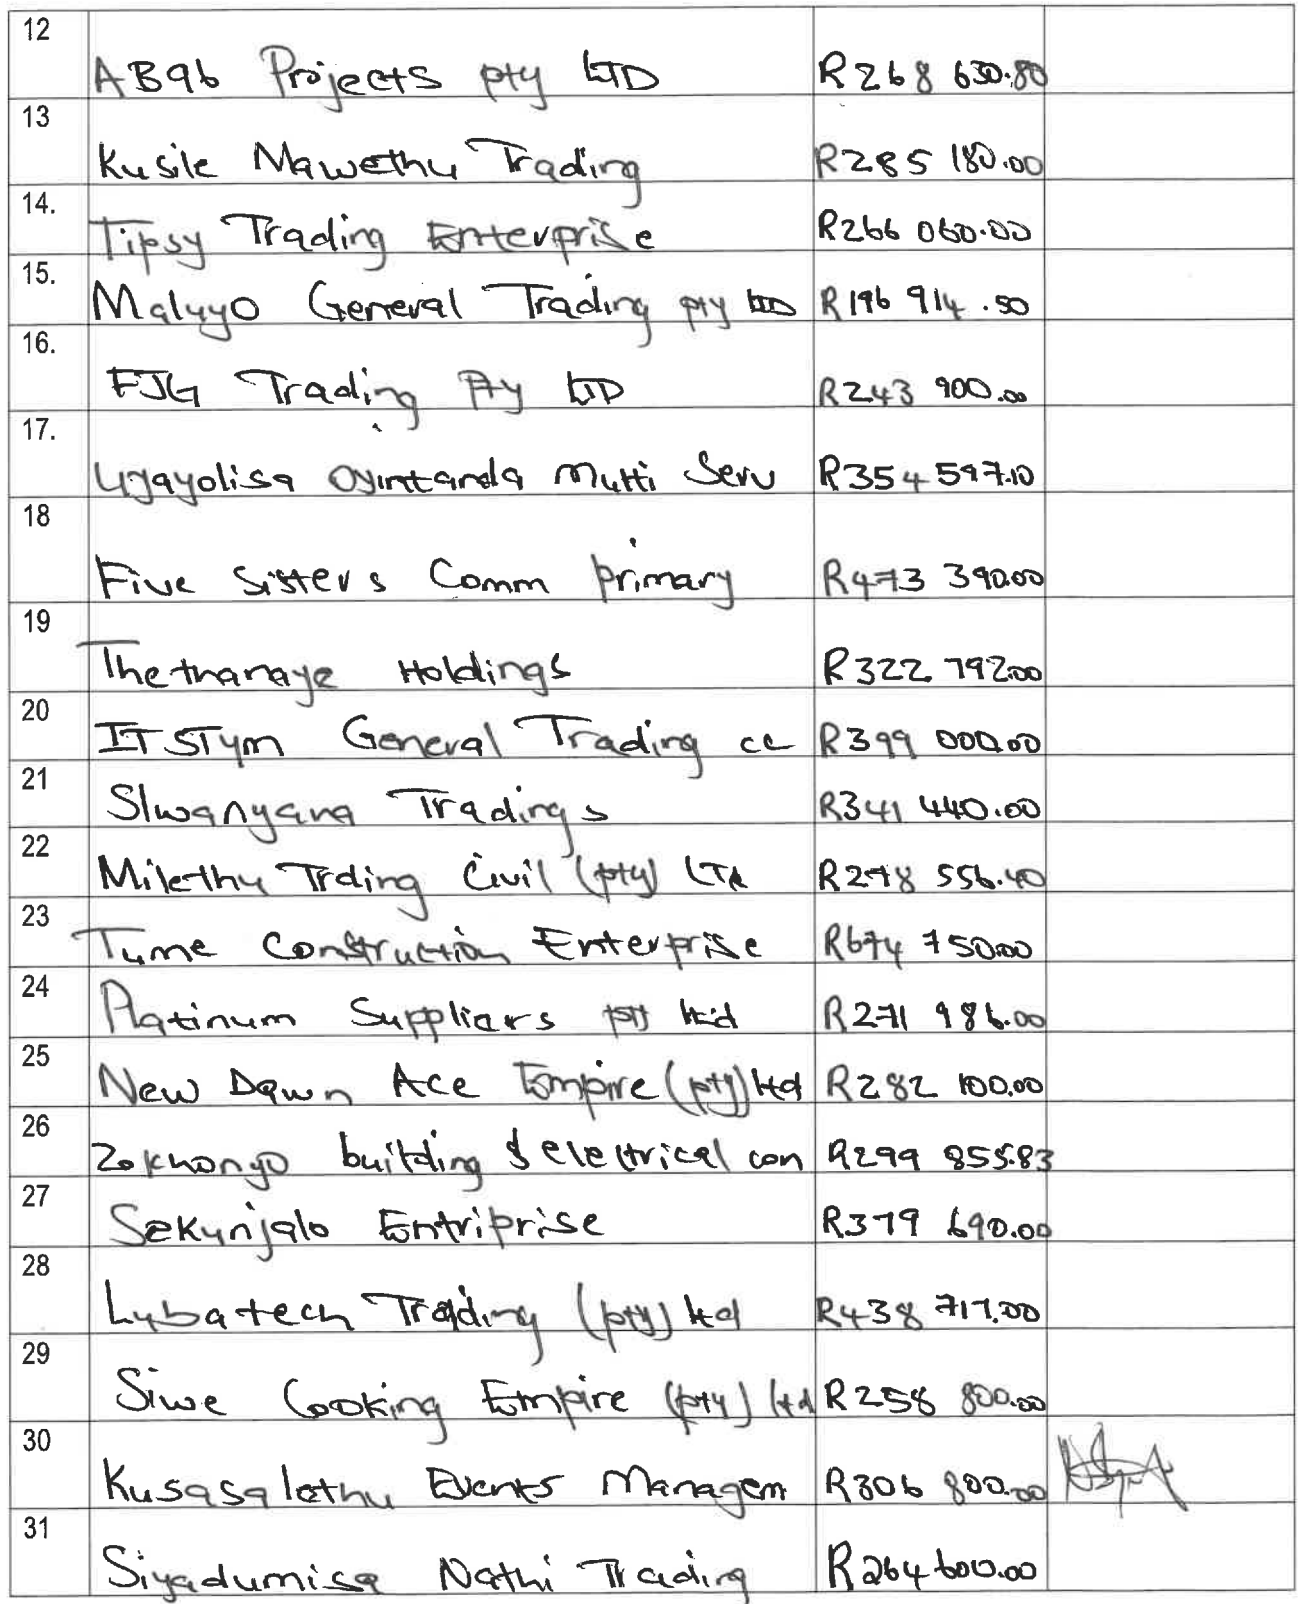 12 AB96 Projects pty LTD R268 630.80
13 Kusile Mawethu Trading R285 180.00
14. Tipsy Trading Enterprise R266 060.00
15. Maluyo General Trading pty LTD R196 914.50
16. FJG Trading Pty LTD R243 900.00
17. Oyintanda Multi Serv R354 597.10
18 Five Sisters Comm primary R473 390.00
19 Thethanaye Holdings R322 792.00
20 ITSTym General Trading cc R399 000.00
21 Slwanyana Tradings R341 440.00
22 Milethu Trding Civil (pty) LTd R278 556.40
23 Tume Construction Enterprise R674 750.00
24 Platinum Suppliers pty ltd R271 986.00
25 New Dawn Ace Empire (pty) ltd R282 100.00
26 Zokhanyo building & electrical con R299 855.83
27 Sekunjalo Entriprise R379 690.00
28 Lubatech Trading (pty) ltd R438 717.00
29 Siwe Cooking Empire (pty) ltd R258 800.00
30 Kusasalethu Events Managem R306 800.00
31 Siyadumisa Nathi Trading R264 600.00